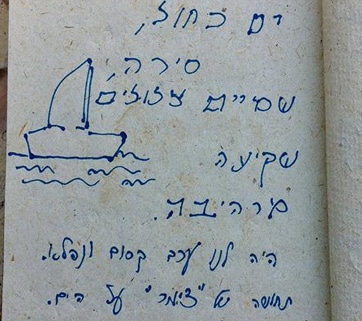 ים כחול,
סירה,
שמיים צלולים,
שקיעה
מרהיבה.
היה לנו ערב קסום ונפלא.
תחושה של "צימר" על הים.